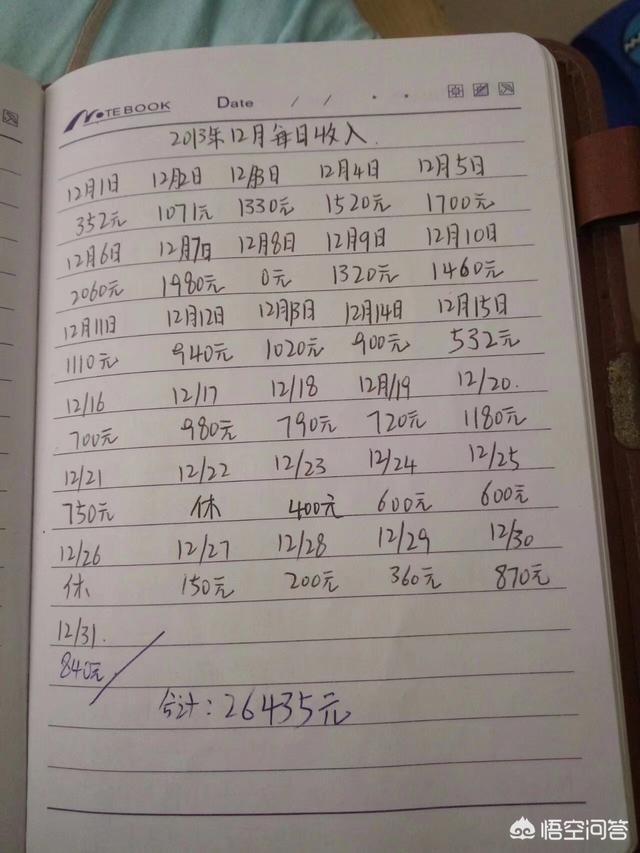 NOTEBOOK Date / / · ·
2013年12月每日收入
12月1日 12月2日 12月3日 12月4日 12月5日
352元 1071元 1330元 1520元 1700元
12月6日 12月7日 12月8日 12月9日 12月10日
2060元 1980元 0元 1320元 1460元
12月11日 12月12日 12月13日 12月14日 12月15日
1110元 940元 1020元 900元 532元
12/16 12/17 12/18 12月/19 12/20.
700元 980元 790元 720元 1180元
12/21 12/22 12/23 12/24 12/25
750元 休 400元 600元 600元
12/26 12/27 12/28 12/29 12/30
休 150元 200元 360元 870元
12/31.
840元
合计：26435元
悟空问答